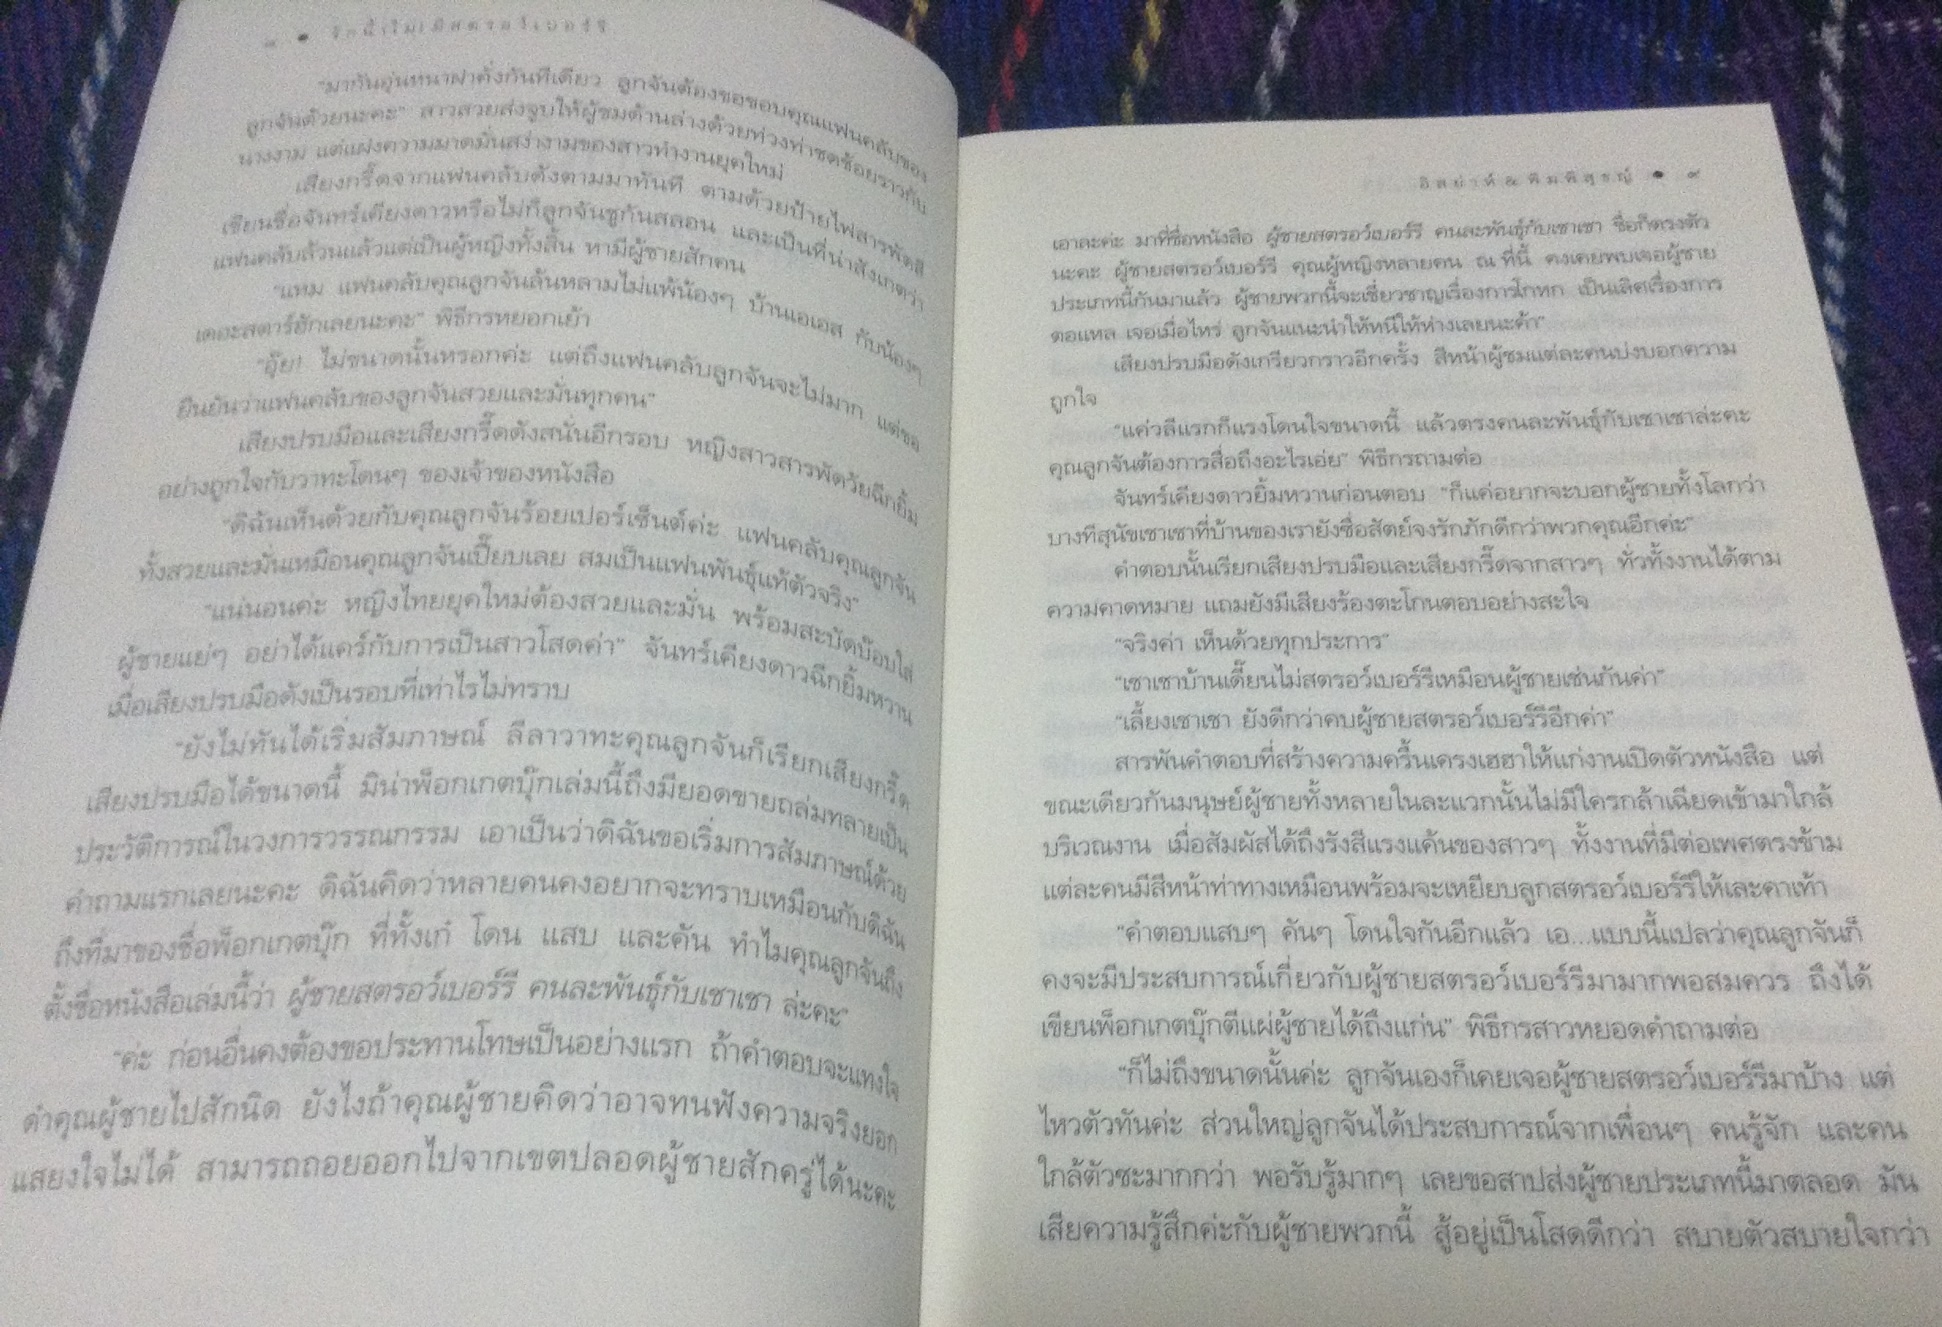 ๘ • รักนี้ไม่มีสตรอว์เบอร์รี
"มากันอุ่นหนาฝาคั่งกันทีเดียว ลูกจันต้องขอขอบคุณแฟนคลับของ
ลูกจันด้วยนะคะ" สาวสวยส่งจูบให้ผู้ชมด้านล่างด้วยท่วงท่าชดช้อยราวกับ
นางงาม แต่แฝงความมาดมั่นสง่างามของสาวทำงานยุคใหม่
เสียงกรี๊ดจากแฟนคลับดังตามมาทันที ตามด้วยป้ายไฟสารพัดสี
เขียนชื่อจันทร์เคียงดาวหรือไม่ก็ลูกจันชูกันสลอน และเป็นที่น่าสังเกตว่า
แฟนคลับล้วนแล้วแต่เป็นผู้หญิงทั้งสิ้น หามีผู้ชายสักคน
"แหม แฟนคลับคุณลูกจันล้นหลามไม่แพ้น้องๆ บ้านเอเอส กับน้องๆ
เดอะสตาร์ฮักเลยนะคะ" พิธีกรหยอกเย้า
"อุ๊ย! ไม่ขนาดนั้นหรอกค่ะ แต่ถึงแฟนคลับลูกจันจะไม่มาก แต่ขอ
ยืนยันว่าแฟนคลับของลูกจันสวยและมั่นทุกคน"
เสียงปรบมือและเสียงกรี๊ดดังสนั่นอีกรอบ หญิงสาวสารพัดวัยฉีกยิ้ม
อย่างถูกใจกับวาทะโดนๆ ของเจ้าของหนังสือ
"ดิฉันเห็นด้วยกับคุณลูกจันร้อยเปอร์เซ็นต์ค่ะ แฟนคลับคุณลูกจัน
ทั้งสวยและมั่นเหมือนคุณลูกจันเปี๊ยบเลย สมเป็นแฟนพันธุ์แท้ตัวจริง"
"แน่นอนค่ะ หญิงไทยยุคใหม่ต้องสวยและมั่น พร้อมสะบัดบ๊อบใส่
ผู้ชายแย่ๆ อย่าได้แคร์กับการเป็นสาวโสดค่า" จันทร์เคียงดาวฉีกยิ้มหวาน
เมื่อเสียงปรบมือดังเป็นรอบที่เท่าไรไม่ทราบ
"ยังไม่ทันได้เริ่มสัมภาษณ์ ลีลาวาทะคุณลูกจันก็เรียกเสียงกรี๊ด
เสียงปรบมือได้ขนาดนี้ มิน่าพ็อกเกตบุ๊กเล่มนี้ถึงมียอดขายถล่มทลายเป็น
ประวัติการณ์ในวงการวรรณกรรม เอาเป็นว่าดิฉันขอเริ่มการสัมภาษณ์ด้วย
คำถามแรกเลยนะคะ ดิฉันคิดว่าหลายคนคงอยากจะทราบเหมือนกับดิฉัน
ถึงที่มาของชื่อพ็อกเกตบุ๊ก ที่ทั้งเก๋ โดน แสบ และคัน ทำไมคุณลูกจันถึง
ตั้งชื่อหนังสือเล่มนี้ว่า ผู้ชายสตรอว์เบอร์รี คนละพันธุ์กับเชาเชา ล่ะคะ"
"ค่ะ ก่อนอื่นคงต้องขอประทานโทษเป็นอย่างแรก ถ้าคำตอบจะแทงใจ
ดำคุณผู้ชายไปสักนิด ยังไงถ้าคุณผู้ชายคิดว่าอาจทนฟังความจริงยอก
แสยงใจไม่ได้ สามารถถอยออกไปจากเขตปลอดผู้ชายสักครู่ได้นะคะ
อิสย่าห์ & พิมพิสุรญ์ • ๙
เอาละค่ะ มาที่ชื่อหนังสือ ผู้ชายสตรอว์เบอร์รี คนละพันธุ์กับเชาเชา ชื่อก็ตรงตัว
นะคะ ผู้ชายสตรอว์เบอร์รี คุณผู้หญิงหลายคน ณ ที่นี้ คงเคยพบเจอผู้ชาย
ประเภทนี้กันมาแล้ว ผู้ชายพวกนี้จะเชี่ยวชาญเรื่องการโกหก เป็นเลิศเรื่องการ
ตอแหล เจอเมื่อไหร่ ลูกจันแนะนำให้หนีให้ห่างเลยนะค้า"
เสียงปรบมือดังเกรียวกราวอีกครั้ง สีหน้าผู้ชมแต่ละคนบ่งบอกความ
ถูกใจ
"แค่วลีแรกก็แรงโดนใจขนาดนี้ แล้วตรงคนละพันธุ์กับเชาเชาล่ะคะ
คุณลูกจันต้องการสื่อถึงอะไรเอ่ย" พิธีกรถามต่อ
จันทร์เคียงดาวยิ้มหวานก่อนตอบ "ก็แค่อยากจะบอกผู้ชายทั้งโลกว่า
บางทีสุนัขเชาเชาที่บ้านของเรายังซื่อสัตย์จงรักภักดีกว่าพวกคุณอีกค่ะ"
คำตอบนั้นเรียกเสียงปรบมือและเสียงกรี๊ดจากสาวๆ ทั่วทั้งงานได้ตาม
ความคาดหมาย แถมยังมีเสียงร้องตะโกนตอบอย่างสะใจ
"จริงค่า เห็นด้วยทุกประการ"
"เชาเชาบ้านเดี๊ยนไม่สตรอว์เบอร์รีเหมือนผู้ชายเช่นกันค่า"
"เลี้ยงเชาเชา ยังดีกว่าคบผู้ชายสตรอว์เบอร์รีอีกค่า"
สารพันคำตอบที่สร้างความครื้นเครงเฮฮาให้แก่งานเปิดตัวหนังสือ แต่
ขณะเดียวกันมนุษย์ผู้ชายทั้งหลายในละแวกนั้นไม่มีใครกล้าเฉียดเข้ามาใกล้
บริเวณงาน เมื่อสัมผัสได้ถึงรังสีแรงแค้นของสาวๆ ทั้งงานที่มีต่อเพศตรงข้าม
แต่ละคนมีสีหน้าท่าทางเหมือนพร้อมจะเหยียบลูกสตรอว์เบอร์รีให้เละคาเท้า
"คำตอบแสบๆ คันๆ โดนใจกันอีกแล้ว เอ...แบบนี้แปลว่าคุณลูกจันก็
คงจะมีประสบการณ์เกี่ยวกับผู้ชายสตรอว์เบอร์รีมามากพอสมควร ถึงได้
เขียนพ็อกเกตบุ๊กตีแผ่ผู้ชายได้ถึงแก่น" พิธีกรสาวหยอดคำถามต่อ
"ก็ไม่ถึงขนาดนั้นค่ะ ลูกจันเองก็เคยเจอผู้ชายสตรอว์เบอร์รีมาบ้าง แต่
ไหวตัวทันค่ะ ส่วนใหญ่ลูกจันได้ประสบการณ์จากเพื่อนๆ คนรู้จัก และคน
ใกล้ตัวซะมากกว่า พอรับรู้มากๆ เลยขอสาปส่งผู้ชายประเภทนี้มาตลอด มัน
เสียความรู้สึกค่ะกับผู้ชายพวกนี้ สู้อยู่เป็นโสดดีกว่า สบายตัวสบายใจกว่า